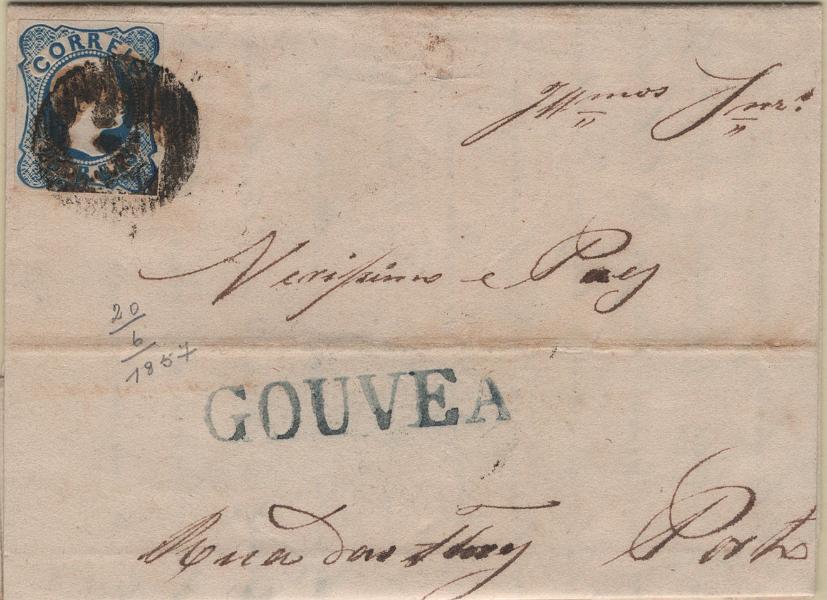 CORREIO
REIS
Illmos Snrs.
Verissimo e Pay
20
6
1857
GOUVEA
Rua das Porto